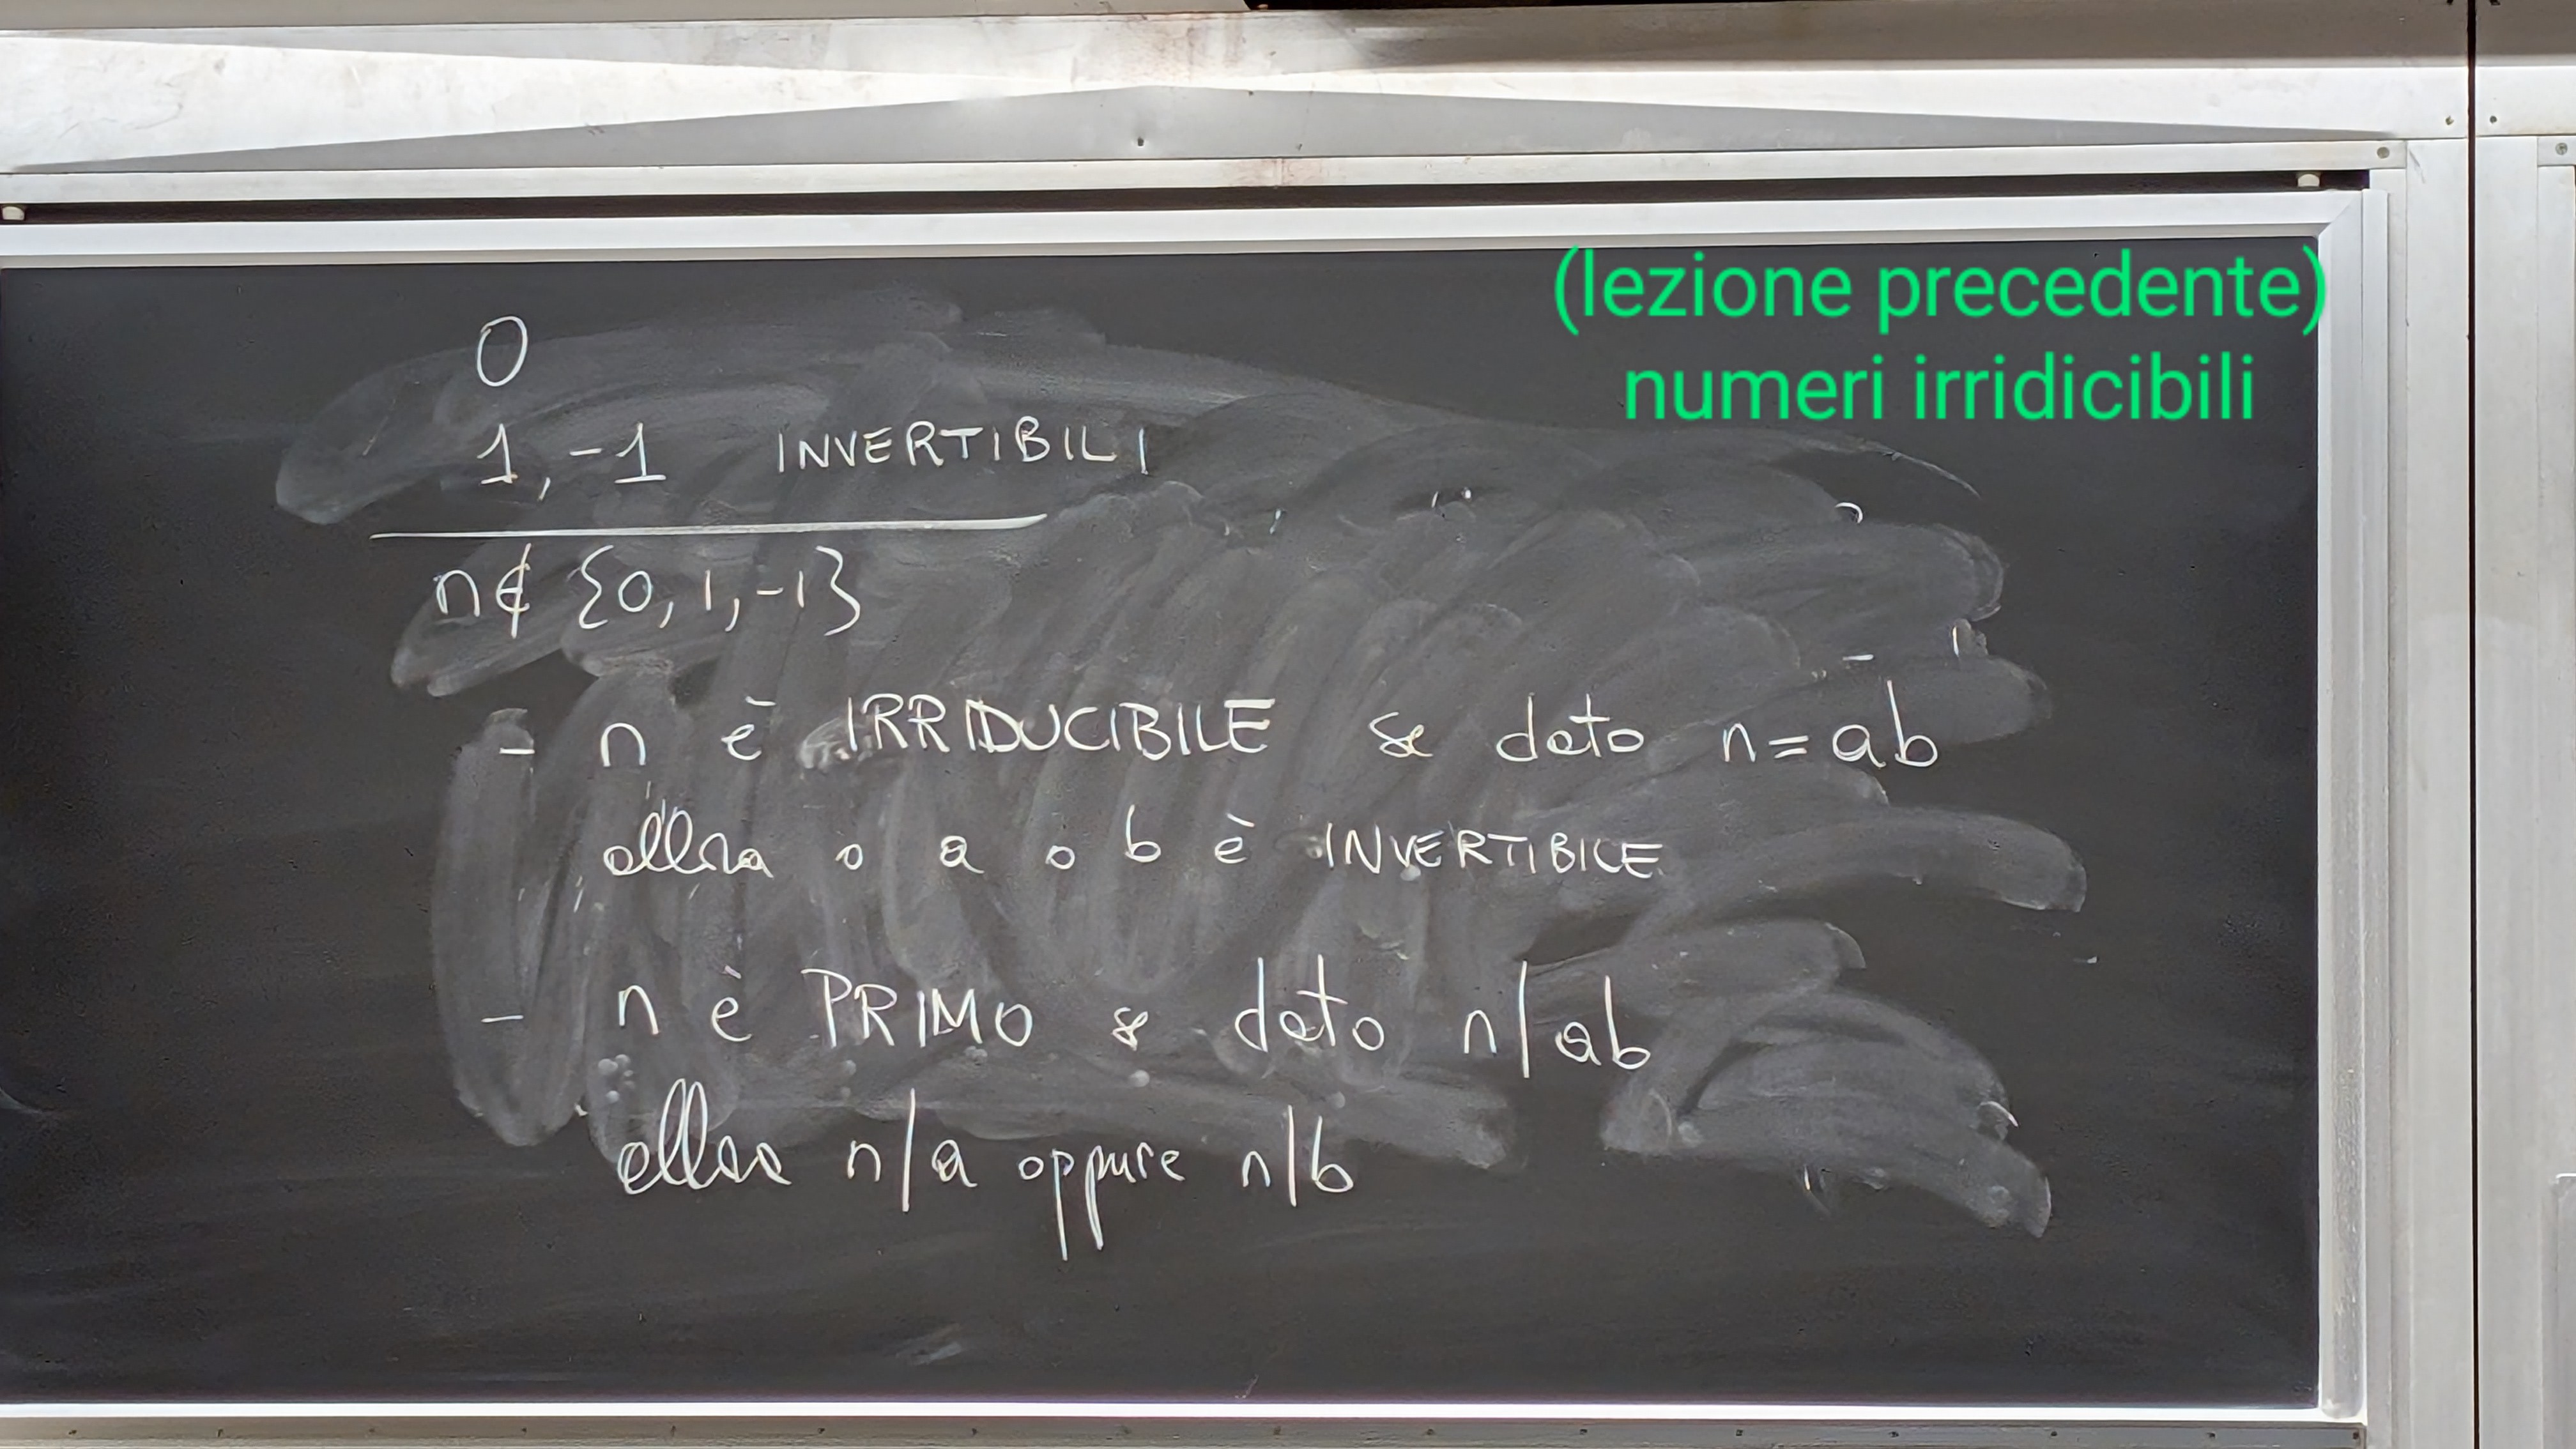 (lezione precedente)
numeri irridicibili
0
1, -1 INVERTIBILI
n∉ {0, 1, -1}
- n è IRRIDUCIBILE se dato n=ab
allora o a o b è INVERTIBILE
- n è PRIMO se dato n|ab
allora n|a oppure n|b